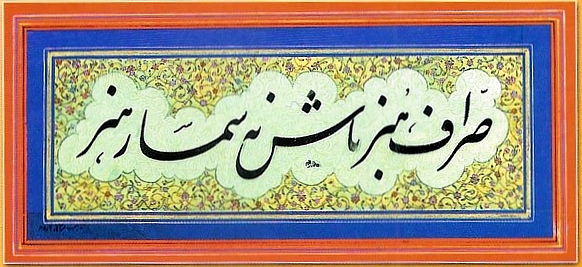 صرّاف هُنر باش نه سمسار هنر